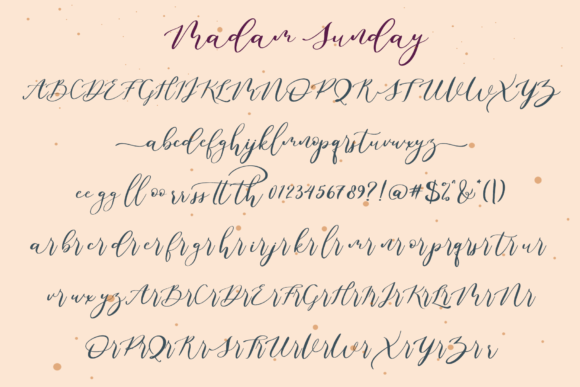 Madam Sunday
ABCDEFGHIJKLMNOPQRSTUVWXYZ
abcdefghijklmnopqrstuvwxyz
ee gg ll oo rr ss tt th 0123456789?!@#$%&*()
ar br cr dr er fr gr hr ir jr kr lr mr nr or pr qr sr tr ur
vr wr xr yr zr Ar Br Cr Dr Er Fr Gr Hr Ir Jr Kr Lr Mr Nr
Or Pr Qr Rr Sr Tr Ur Vr Wr Xr Yr Zr r